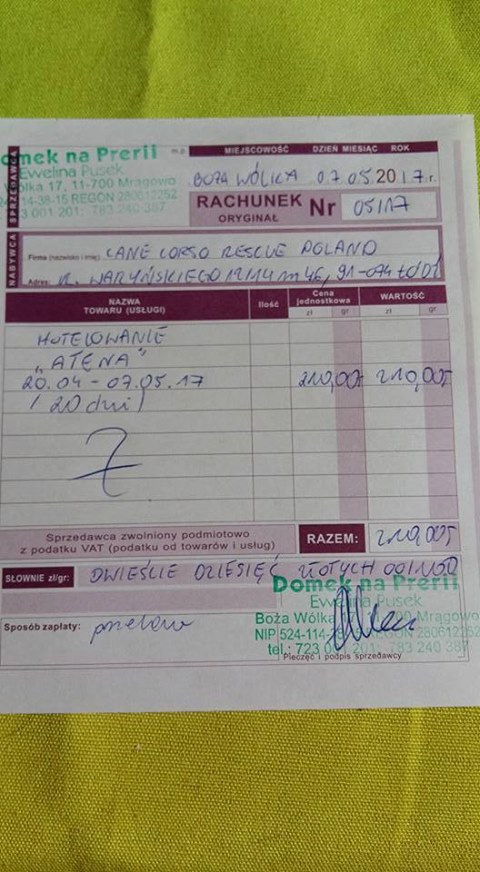 omek na Prerii
Ewelina Pusek
ólka 17, 11-700 Mrągowo
-14-38-15 REGON 280612252
3 001 201; 783 240 387
SPRZEDAWCA
m.p.
MIEJSCOWOŚĆ DZIEŃ MIESIĄC ROK
BOŻA WÓLKA 07.05.2017 r.
RACHUNEK Nr 05/17
ORYGINAŁ
NABYWCA
Firma (nazwisko i imię): CANE CORSO RESCUE POLAND
Adres: UL. WARYŃSKIEGO 12/14 m 46, 91-074 ŁÓDŹ
NAZWA TOWARU (USŁUGI) Ilość Cena jednostkowa WARTOŚĆ
zł gr zł gr
HOTELOWANIE
„ATENA"
20.04 - 07.05.17 210,00 210,00
/20 dni/
Sprzedawca zwolniony podmiotowo
z podatku VAT (podatku od towarów i usług)
RAZEM: 210,00
SŁOWNIE zł/gr: DWIEŚCIE DZIESIĘĆ ZŁOTYCH 00/100
Sposób zapłaty: przelew
Domek na Prerii
Ewelina Pusek
Boża Wólka Mrągowo
NIP 524-114- REGON 280612252
tel.: 723 001 201; 783 240 387
Pieczęć i podpis sprzedawcy